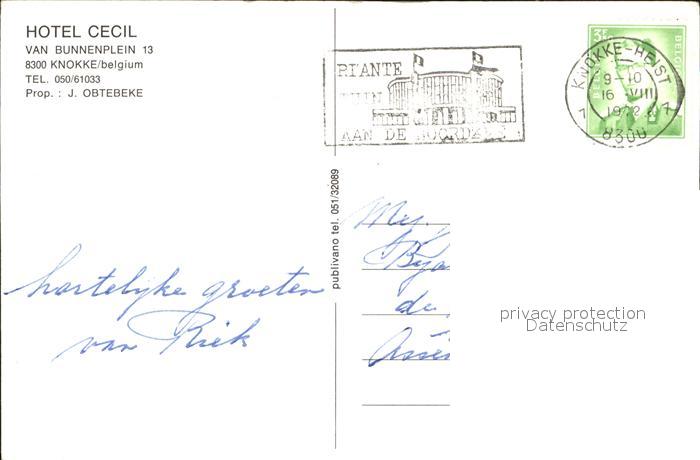 HOTEL CECIL
VAN BUNNENPLEIN 13
8300 KNOKKE/belgium
TEL. 050/61033
Prop. : J. OBTEBEKE
RIANTE
TUIN
AAN DE NOORDZEE
3F
BELGIQUE
KNOKKE-HEIST
9-10
16 VIII
1972
1 1
8300
publivano tel. 051/32089
hartelijke groeten
van Riek
Mej.
de
privacy protection
Datenschutz